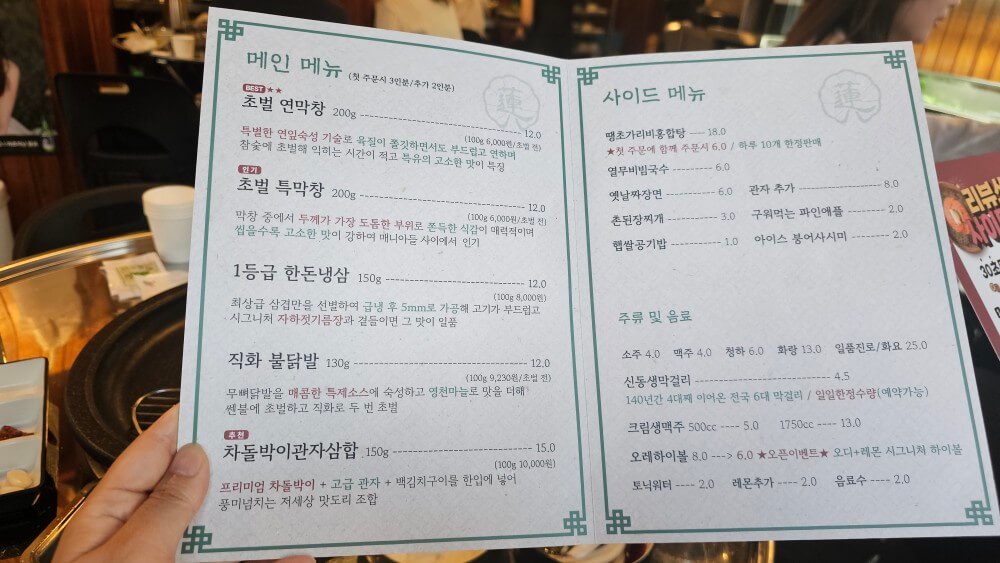 메인 메뉴 (첫 주문시 3인분/추가 2인분)
BEST ★★
초벌 연막창 200g 12.0
(100g 6,000원/초벌 전)
특별한 연잎숙성 기술로 육질이 쫄깃하면서도 부드럽고 연하며
참숯에 초벌해 익히는 시간이 적고 특유의 고소한 맛이 특징
인기
초벌 특막창 200g 12.0
(100g 6,000원/초벌 전)
막창 중에서 두께가 가장 도톰한 부위로 쫀득한 식감이 매력적이며
씹을수록 고소한 맛이 강하여 매니아들 사이에서 인기
1등급 한돈냉삼 150g 12.0
(100g 8,000원)
최상급 삼겹만을 선별하여 급냉 후 5mm로 가공해 고기가 부드럽고
시그니처 자하젓기름장과 곁들이면 그 맛이 일품
직화 불닭발 130g 12.0
(100g 9,230원/초벌 전)
무뼈닭발을 매콤한 특제소스에 숙성하고 영천마늘로 맛을 더해
쎈불에 초벌하고 직화로 두 번 초벌
추천
차돌박이관자삼합 150g 15.0
(100g 10,000원)
프리미엄 차돌박이 + 고급 관자 + 백김치구이를 한입에 넣어
풍미넘치는 저세상 맛도리 조합
蓮
사이드 메뉴
蓮
땡초가리비홍합탕 ---- 18.0
★첫 주문에 함께 주문시 6.0 / 하루 10개 한정판매
열무비빔국수 --------- 6.0
옛날짜장면 --------- 6.0 관자 추가 --------------- 8.0
촌된장찌개 ---------- 3.0 구워먹는 파인애플 -------- 2.0
햅쌀공기밥 --------- 1.0 아이스 붕어사시미 -------- 2.0
주류 및 음료
소주 4.0 맥주 4.0 청하 6.0 화랑 13.0 일품진로/화요 25.0
신동생막걸리 ------------------------- 4.5
140년간 4대째 이어온 전국 6대 막걸리 / 일일한정수량(예약가능)
크림생맥주 500cc ---- 5.0 1750cc ---- 13.0
오레하이볼 8.0 ---> 6.0 ★오픈이벤트★ 오디+레몬 시그니처 하이볼
토닉워터 ---- 2.0 레몬추가 ---- 2.0 음료수 ---- 2.0